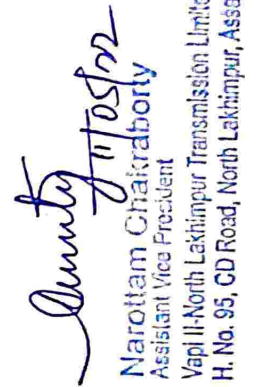 11/05/22
Narottam Chakraborty
Assistant Vice President
Vapi II-North Lakhimpur Transmission Limite
H. No. 95, CD Road, North Lakhimpur, Assa